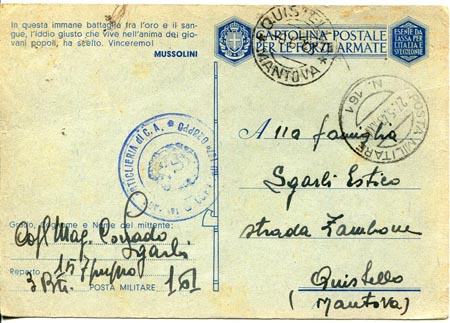 In questa immane battaglia fra l'oro e il san-
gue, l'iddio giusto che vive nell'anima dei gio-
vani popoli, ha scelto. Vinceremo!
MUSSOLINI
CARTOLINA POSTALE
PER LE FORZE ARMATE
ESENTE DA
TASSA PER
L'ITALIA E
SVIZZERA
QUISTELLO
MANTOVA
POSTA MILITARE
N. 161
ARTIGLIERIA di C. A.
Alla famiglia
Sgarli Estico
strada Zambone
Quistello
(Mantova)
Grado, Cognome e Nome del mittente:
Cap. Mag. Corrado
Sgarli
Reparto
3 Btr.
POSTA MILITARE 161